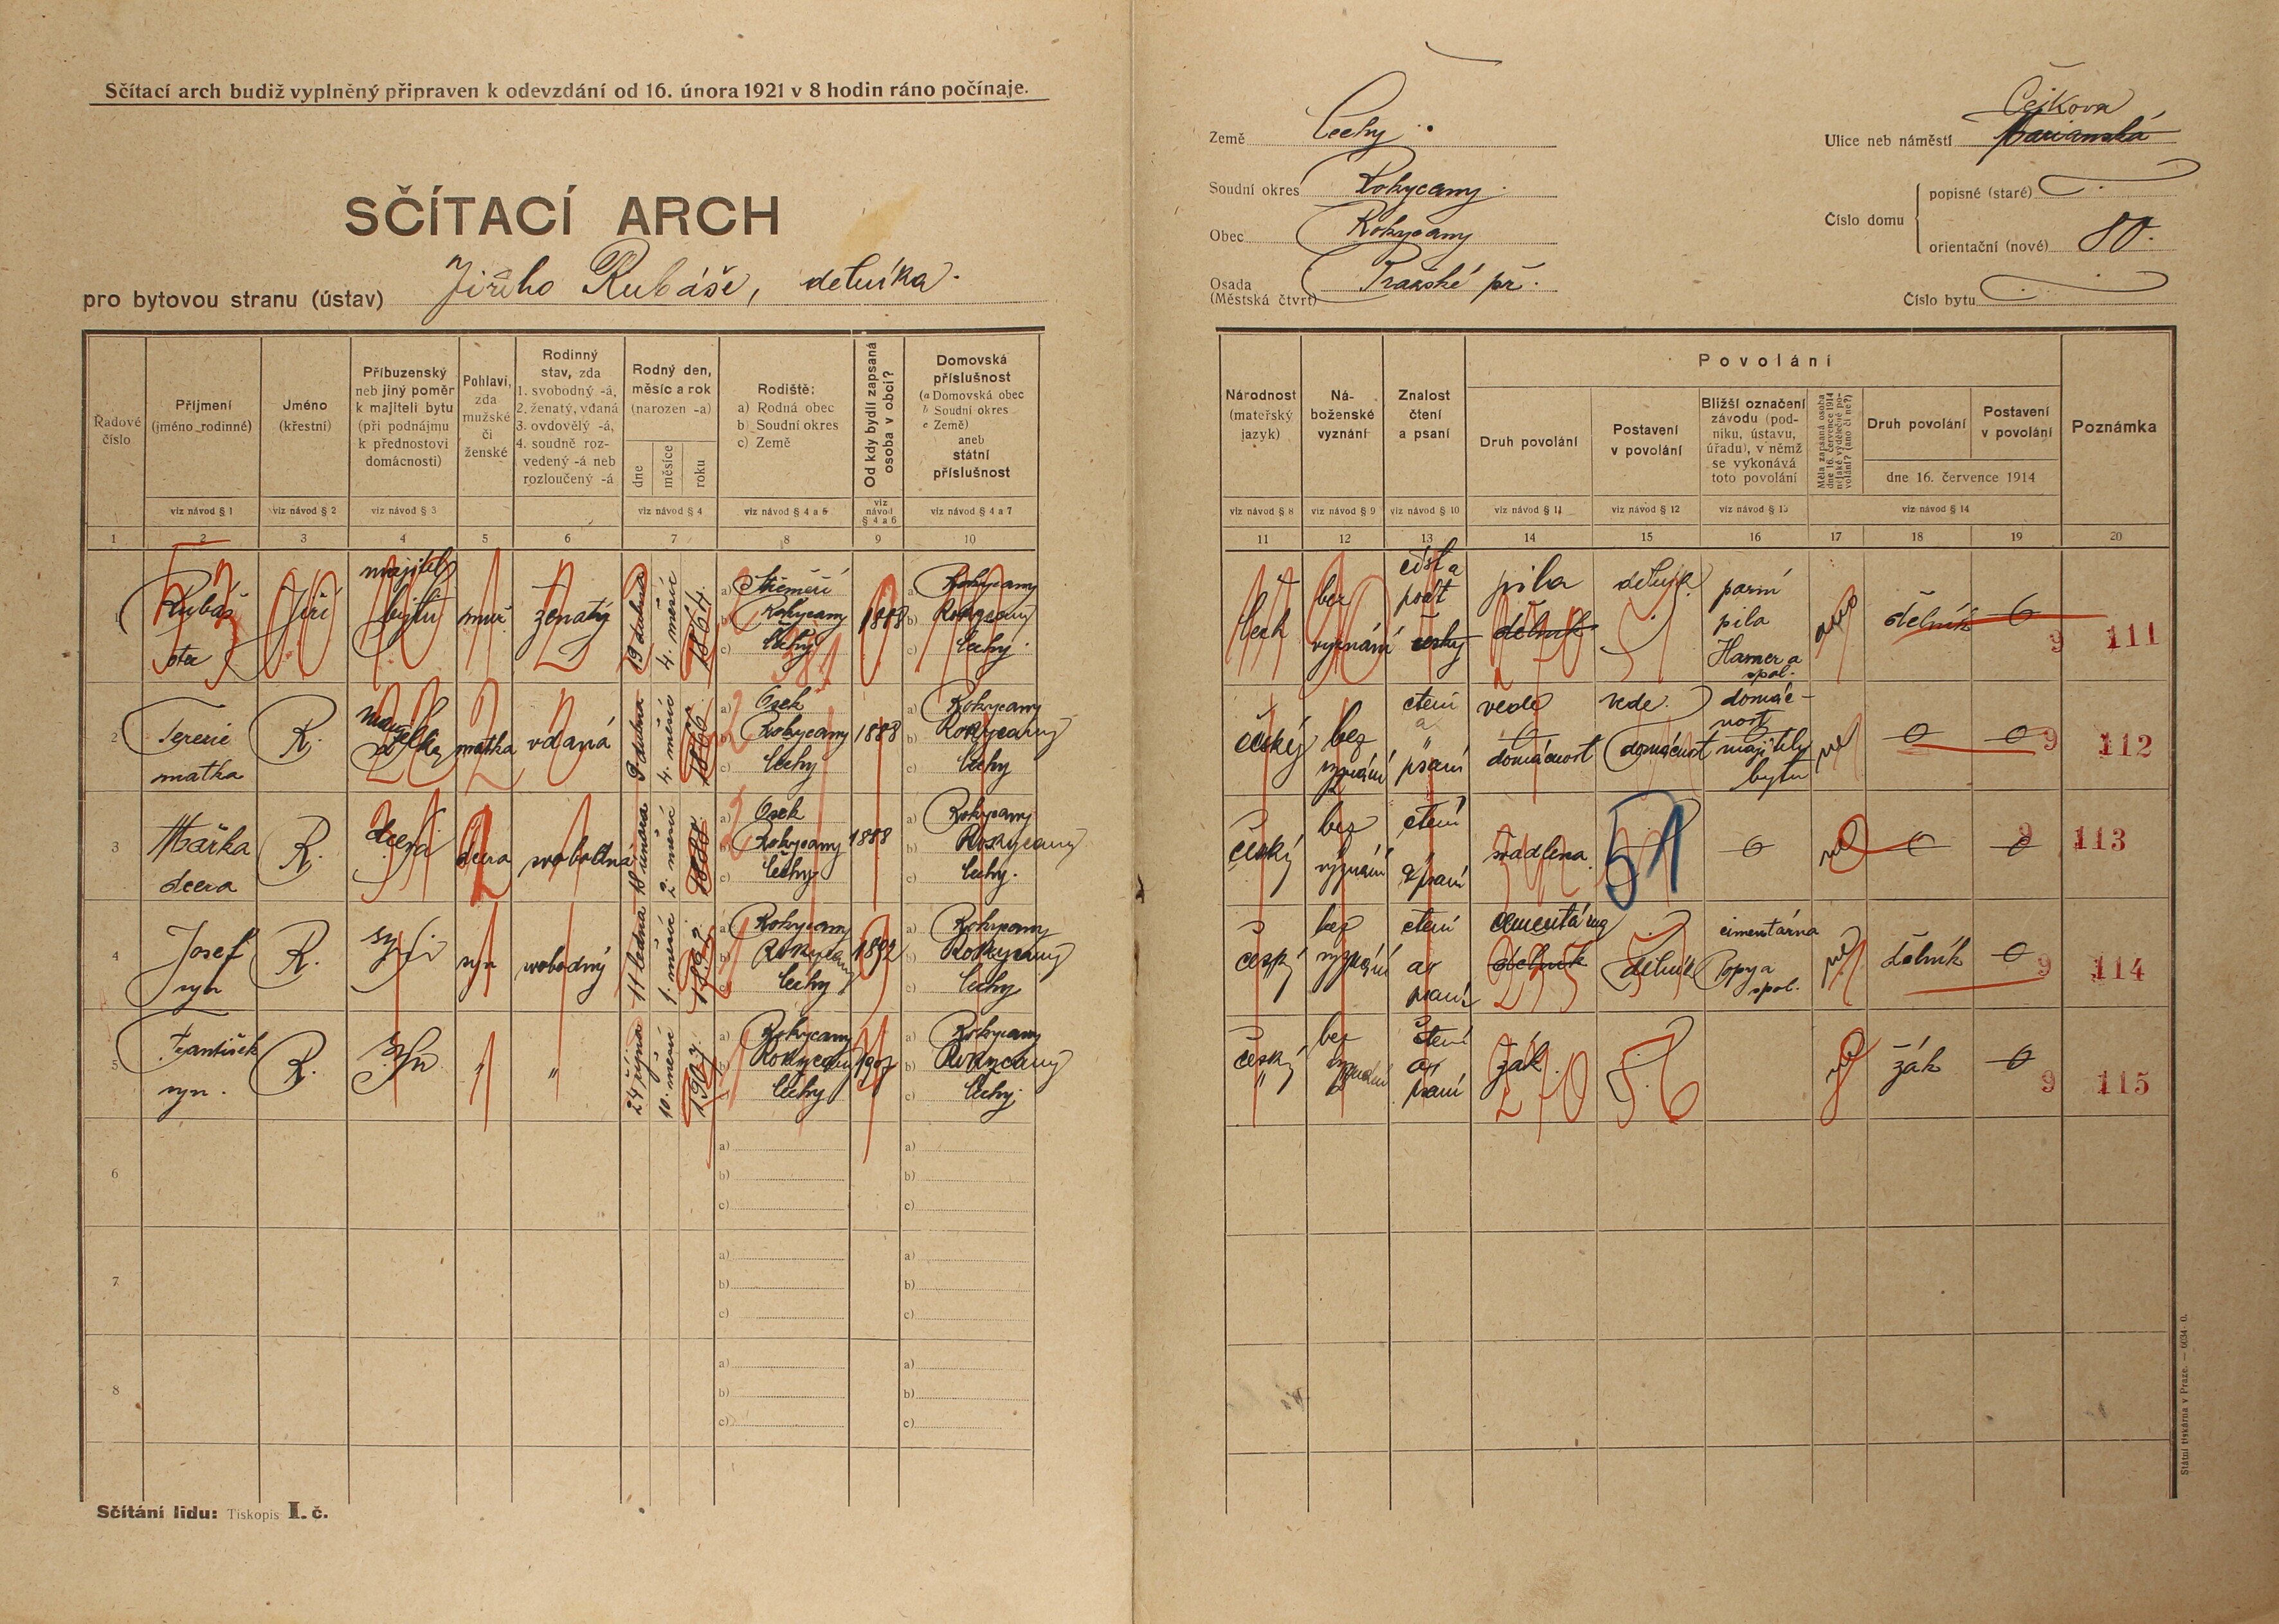 Sčítací arch budiž vyplněný připraven k odevzdání od 16. února 1921 v 8 hodin ráno počínaje.
SČÍTACÍ ARCH
pro bytovou stranu (ústav) Jiřího Rubáše, dělníka
Země Čechy
Soudní okres Rokycany
Obec Rokycany
Osada
(Městská čtvrť) Pražské př.
Čejkova
Ulice neb náměstí
Číslo domu
popisné (staré)
orientační (nové) 80.
Číslo bytu
Řadové číslo
Příjmení
(jméno rodinné)
Jméno
(křestní)
Příbuzenský
neb jiný poměr
k majiteli bytu
(při podnájmu
k přednostovi
domácnosti)
Pohlaví,
zda
mužské
či
ženské
Rodinný
stav, zda
1. svobodný -á,
2. ženatý, vdaná
3. ovdovělý -á,
4. soudně roz-
vedený -á neb
rozloučený -á
Rodný den,
měsíc a rok
(narozen -a)
dne
měsíce
roku
Rodiště:
a) Rodná obec
b) Soudní okres
c) Země
Od kdy bydlí zapsaná
osoba v obci?
Domovská
příslušnost
(a Domovská obec
b Soudní okres
c Země)
aneb
státní
příslušnost
viz návod § 1
viz návod § 2
viz návod § 3
viz návod § 4
viz návod § 4 a 5
viz
návod
§ 4 a 6
viz návod § 4 a 7
1 2 3 4 5 6 7 8 9 10
Národnost
(mateřský
jazyk)
Ná-
boženské
vyznání
Znalost
čtení
a psaní
Povolání
Druh povolání
Postavení
v povolání
Bližší označení
závodu (pod-
niku, ústavu,
úřadu), v němž
se vykonává
toto povolání
Měla zapsaná osoba
dne 16. července 1914
nějaké výdělečné po-
volání? (ano či ne?)
Druh povolání
Postavení
v povolání
dne 16. července 1914
Poznámka
viz návod § 8
viz návod § 9
viz návod § 10
viz návod § 11
viz návod § 12
viz návod § 13
viz návod § 14
11 12 13 14 15 16 17 18 19 20
Rubáš
otec
Jiří
majitel
bytu
muž
ženatý
19 dubna
4. měsíc
1864.
a)
b) Rokycany
c) Čechy
1888
a) Rokycany
b) Rokycany
c) Čechy
bez
vyznání
česky
pila
dělník
parní
pila
Hamer a
spol.
ano
dělník
9
111
2
Terezie
matka
R.
manželka
matka
vdaná
4. měsíc
1866
a) Osek
b) Rokycany
c) Čechy
1888
a) Rokycany
b) Rokycany
c) Čechy
český
bez
vyznání
čtení
a
psaní
vede
domácnost
vede
domácnost
domác-
nost
majitele
bytu
ne
9
112
3
Mařka
dcera
R.
dcera
dcera
svobodná
18 února
2. měsíc
a) Osek
b) Rokycany
c) Čechy
1888
a) Rokycany
b) Rokycany
c) Čechy.
český
bez
vyznání
čtení
a psaní
švadlena
51
ne
9
113
4
Josef
syn
R.
syn
syn
svobodný
11 ledna
1. měsíc
a) Rokycany
b) Rokycany
c) Čechy
1892
a) Rokycany
b) Rokycany
c) Čechy
český
bez
vyznání
čtení
a
psaní
cementárna
dělník
235
dělník
cimentárna
Popy a
spol.
dělník
9
114
5
František
syn.
R.
syn
"
"
24 října
10. měsíc
1907.
a) Rokycany
b) Rokycany
c) Čechy
1907
a) Rokycany
b) Rokycany
c) Čechy.
český
"
bez
vyznání
čtení
a
psaní
žák
270
56
žák
9
115
6
a)
b)
c)
a)
b)
c)
7
a)
b)
c)
a)
b)
c)
8
a)
b)
c)
a)
b)
c)
Sčítání lidu: Tiskopis I. č.
Státní tiskárna v Praze. — 6634-0.